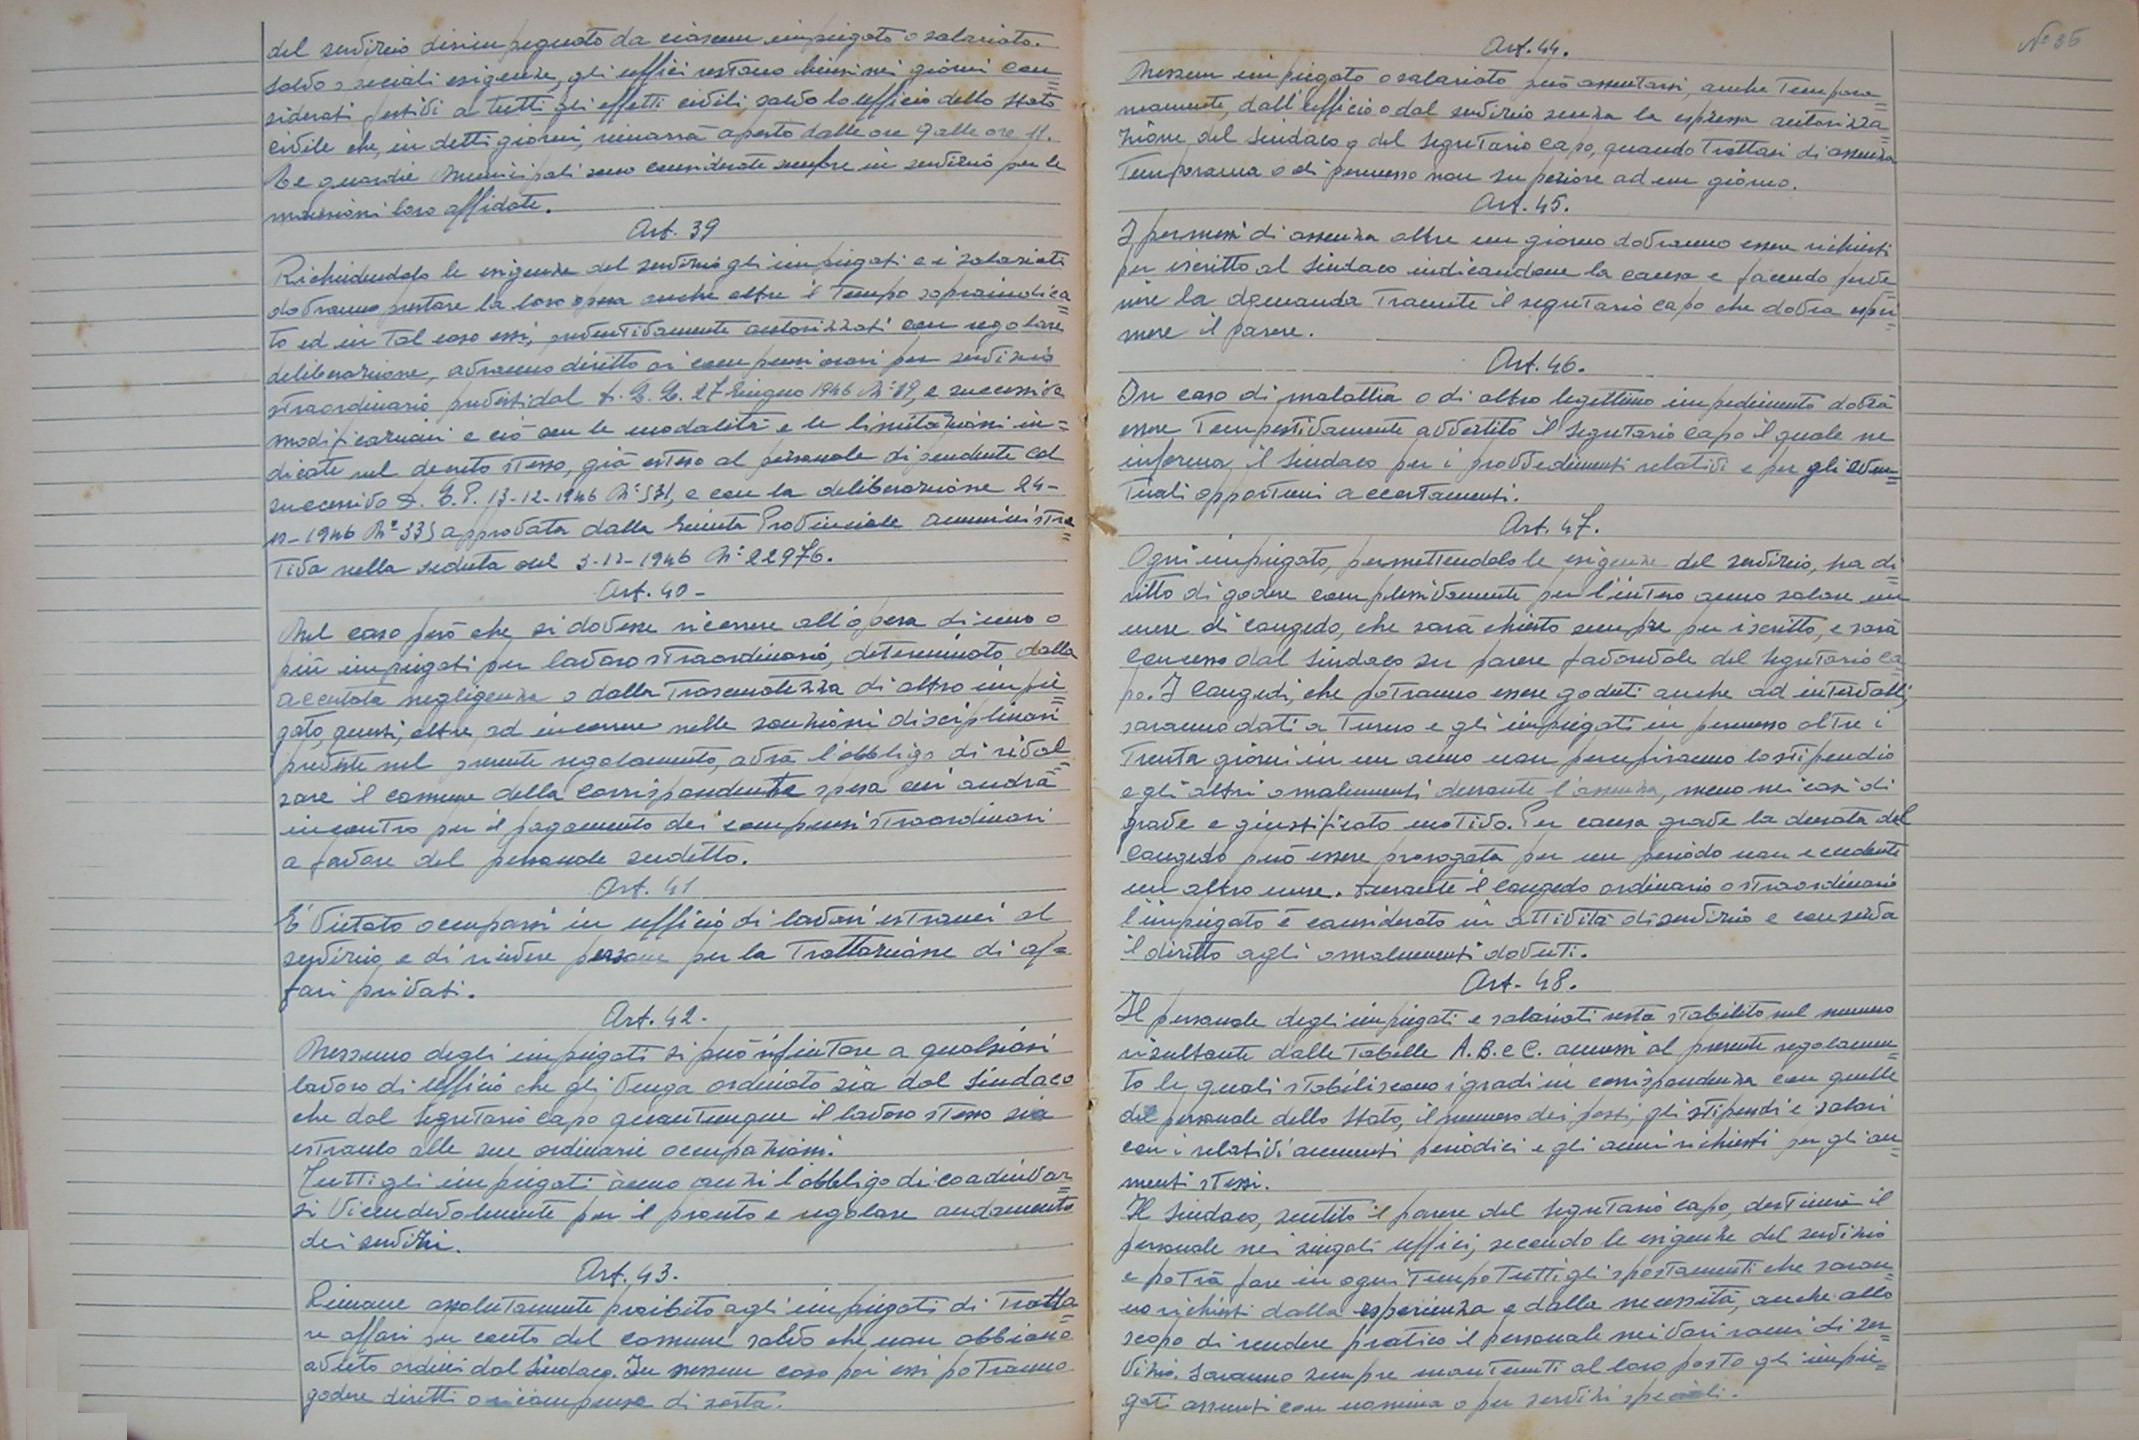 del servizio disimpegnato da ciascun impiegato o salariato.
Salvo speciali esigenze, gli uffici restano chiusi nei giorni con=
siderati festivi a tutti gli effetti civili, salvo lo ufficio dello stato
civile che, in detti giorni, rimarrà aperto dalle ore 9 alle ore 11.
Le guardie Municipali sono considerate sempre in servizio per le
mansioni loro affidate.
Art. 39
Richiedendolo le esigenze del servizio gli impiegati e i salariati
dovranno prestare la loro opera anche oltre il tempo sopraindica=
to ed in tal caso essi, preventivamente autorizzati con regolare
deliberazione, avranno diritto ai compensi orari per servizio
straordinario previsti dal D. L. L. 27 Giugno 1946 N° 19, e successive
modificazioni e ciò con le modalità e le limitazioni in=
dicate nel decreto stesso, già esteso al personale dipendente col
successivo D. C. P. 13-12-1946 N° 531, e con la deliberazione 24-
10-1946 N° 335 approvata dalla Giunta Provinciale Amministra=
tiva nella seduta del 3-12-1946 N° 22976.
Art. 40-
Nel caso però che si dovesse ricorrere all'opera di uno o
più impiegati per lavoro straordinario, determinato dalla
accertata negligenza o dalla trascuratezza di altro impie=
gato, questi, oltre ad incorrere nelle sanzioni disciplinari
previste nel presente regolamento, avrà l'obbligo di rival=
sare il comune della corrispondente spesa cui andrà
incontro per il pagamento dei compensi straordinari
a favore del personale suddetto.
Art. 41
E' vietato occuparsi in ufficio di lavori estranei al
servizio e di ricevere persone per la trattazione di af=
fari privati.
Art. 42-
Nessuno degli impiegati si può rifiutare a qualsiasi
lavoro di ufficio che gli venga ordinato sia dal Sindaco
che dal Segretario capo quantunque il lavoro stesso sia
estraneo alle sue ordinarie occupazioni.
Tutti gli impiegati ànno anzi l'obbligo di coadiuvar=
si vicendevolmente per il pronto e regolare andamento
dei servizi.
Art. 43.
Rimane assolutamente proibito agli impiegati di tratta=
re affari per conto del comune salvo che non abbiano
avuto ordini dal Sindaco. In nessun caso poi essi potranno
godere diritti o ricompense di sorta.
N° 35
Art. 44.
Nessun impiegato o salariato può assentarsi, anche tempora=
neamente, dall'ufficio o dal servizio senza la espressa autorizza=
zione del Sindaco o del Segretario capo, quando trattasi di assenza
temporanea o di permesso non superiore ad un giorno.
Art. 45.
I permessi di assenza oltre un giorno dovranno essere richiesti
per iscritto al Sindaco indicandone la causa e facendo perve=
nire la domanda tramite il segretario capo che dovrà espri=
mere il parere.
Art. 46.
In caso di malattia o di altro legittimo impedimento dovrà
essere tempestivamente avvertito il Segretario capo il quale ne
informa il Sindaco per i provvedimenti relativi e per gli even=
tuali opportuni accertamenti.
Art. 47.
Ogni impiegato, permettendolo le esigenze del servizio, ha di=
ritto di godere complessivamente per l'intero anno solare un
mese di congedo, che sarà chiesto sempre per iscritto, e sarà
concesso dal Sindaco su parere favorevole del Segretario ca=
po. I congedi, che potranno essere goduti anche ad intervalli,
saranno dati a turno e gli impiegati in permesso oltre i
trenta giorni in un anno non percepiranno lo stipendio
e gli altri omolumenti durante l'assenza, meno nei casi di
grave e giustificato motivo. Per causa grave la durata del
congedo può essere prorogata per un periodo non eccedente
un altro mese. Durante il congedo ordinario o straordinario
l'impiegato è considerato in attività di servizio e conserva
il diritto agli omolumenti dovuti.
Art. 48.
Il personale degli impiegati e salariati resta stabilito nel numero
risultante dalle tabelle A. B. e C. annessi al presente regolamen=
to le quali stabiliscono i gradi in corrispondenza con quelle
del personale dello Stato, il numero dei posti, gli stipendi e salari
con i relativi aumenti periodici e gli anni richiesti per gli au=
menti stessi.
Il Sindaco, sentito il parere del Segretario capo, destinerà il
personale nei singoli uffici, secondo le esigenze del servizio
e potrà fare in ogni tempo tutti gli spostamenti che saran=
no richiesti dalla esperienza e dalla necessità, anche allo
scopo di rendere pratico il personale nei vari rami di ser=
vizio. Saranno sempre mantenuti al loro posto gli impie=
gati assunti con nomina o per servizi speciali.